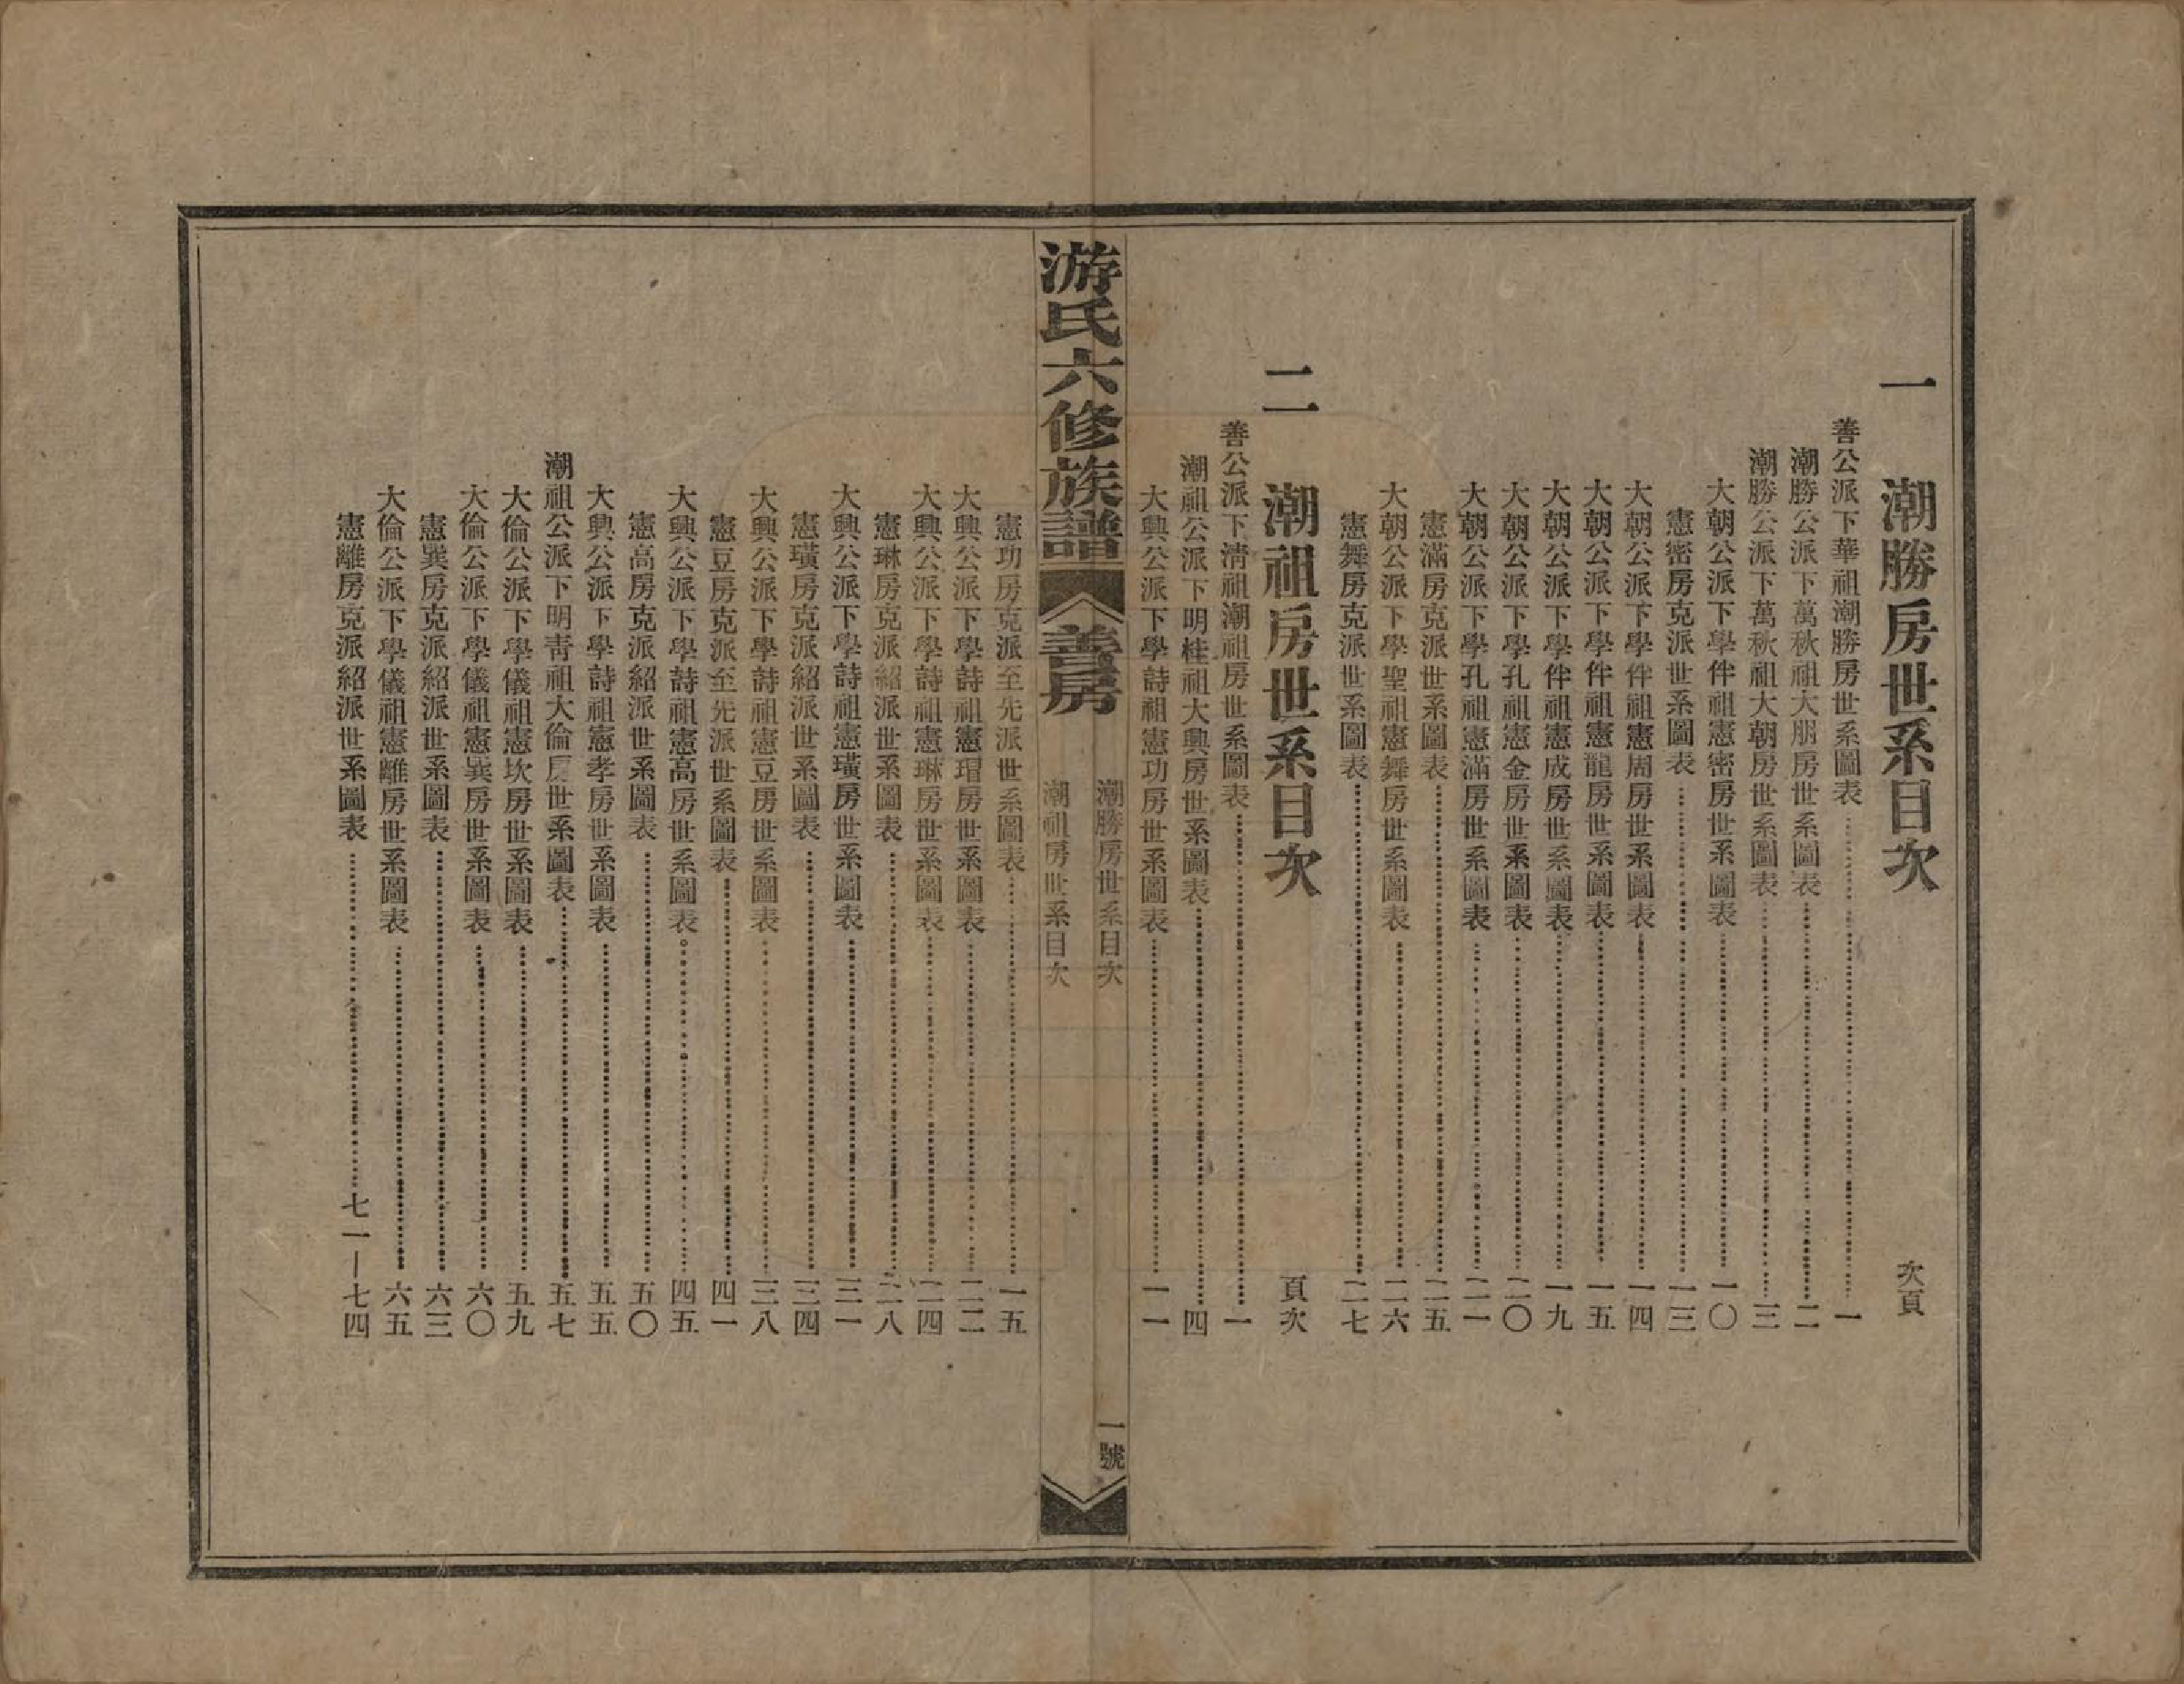 一　潮勝房世系目次　次頁
善公派下華祖潮勝房世系圖表……一
潮勝公派下萬秋祖大朋房世系圖表……二
潮勝公派下萬秋祖大朝房世系圖表……三
大朝公派下學伴祖憲密房世系圖表……一〇
憲密房克派世系圖表……一三
大朝公派下學伴祖憲周房世系圖表……一四
大朝公派下學伴祖憲龍房世系圖表……一五
大朝公派下學伴祖憲成房世系圖表……一九
大朝公派下學孔祖憲金房世系圖表……二〇
大朝公派下學孔祖憲滿房世系圖表……二一
憲滿房克派世系圖表……二五
大朝公派下學聖祖憲舞房世系圖表……二六
憲舞房克派世系圖表……二七
二　潮祖房世系目次　頁次
善公派下清祖潮祖房世系圖表……一
潮祖公派下明桂祖大興房世系圖表……四
大興公派下學詩祖憲功房世系圖表……一一
游氏六修族譜
善房
潮勝房世系目次
潮祖房世系目次
一號
憲功房克派至先派世系圖表……一五
大興公派下學詩祖憲瑁房世系圖表……二二
大興公派下學詩祖憲琳房世系圖表……二四
憲琳房克派紹派世系圖表……二八
大興公派下學詩祖憲璜房世系圖表……三一
憲璜房克派紹派世系圖表……三四
大興公派下學詩祖憲豆房世系圖表……三八
憲豆房克派至先派世系圖表……四一
大興公派下學詩祖憲高房世系圖表……四五
憲高房克派紹派世系圖表……五〇
大興公派下學詩祖憲孝房世系圖表……五五
潮祖公派下明青祖大倫房世系圖表……五七
大倫公派下學儀祖憲坎房世系圖表……五九
大倫公派下學儀祖憲巽房世系圖表……六〇
憲巽房克派紹派世系圖表……六三
大倫公派下學儀祖憲離房世系圖表……六五
憲離房克派紹派世系圖表……七一—七四